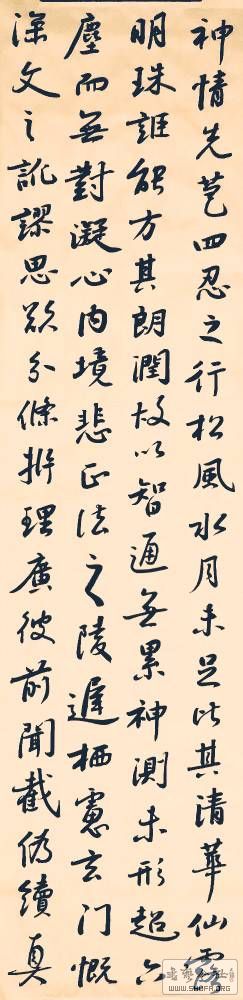 神情先苞四忍之行松風水月未足比其清華仙露
明珠詎能方其朗潤故以智通無累神測未形超六
塵而無對凝心內境悲正法之陵遲栖慮玄門慨
深文之訛謬思欲分條析理廣彼前聞截偽續真
WWW.SHUFA.ORG